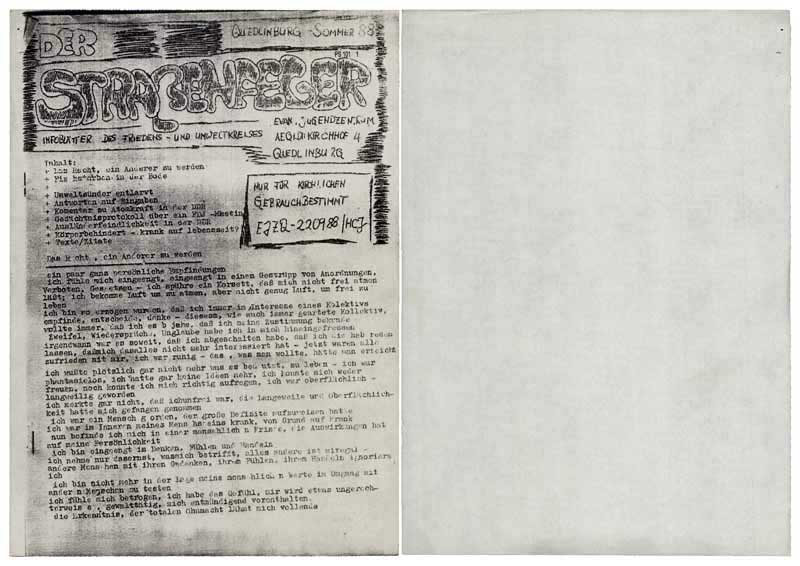 DER
QUEDLINBURG - SOMMER 88
STRAßENFEGER
EVAN. JUGENDZENTRUM
INFOBLÄTTER DES FRIEDENS - UND UMWELTKREISES
AEGIDIKIRCHHOF 4
QUEDLINBURG
Inhalt:
+ Das Recht, ein Anderer zu werden
+ in der Bode
+
+ Umweltsünder entlarvt
+ Antworten auf Eingaben
+ Komentar zu Atomkraft in der DDR
+ Gedächtnisprotokoll über ein
+ Ausländerfeindlichkeit in der DDR
+ Körperbehindert - krank auf lebenszeit?
+ Texte/Zitate
NUR FÜR KIRCHLICHEN
GEBRAUCH BESTIMMT
EJZQ-220988/HCJ
Das Recht , ein Anderer zu werden
ein paar ganz persönliche Empfindungen
ich fühle mich eingeengt, eingezengt in einen Gestrüpp von Anordnungen,
Verboten, Gesetzen - ich spühre ein Korsett, daß mich nicht frei atmen
läßt; ich bekomme Luft um zu atmen, aber nicht genug Luft, um frei zu
leben
ich bin so erzogen wurden, daß ich immer im Interesse eines Kolektivs
empfinde, entscheide, denke - diesem, wie auch immer geartete Kollektiv,
wollte immer, daß ich es bejahe, daß ich meine Zustimmung bekunde
Zweifel, Wiedersprüche, Unglaube habe ich in mich hineingefressen
irgendwann war es soweit, daß ich abgeschalten habe, daß ich die hab reden
lassen, daß mich das alles nicht mehr interessiert hat - jetzt waren alle
zufrieden mit mir, ich war ruhig - das , was man wollte, hatte man erreicht
ich wußte plötzlich gar nicht mehr was es bedeutet, zu leben - ich war
phantasielos, ich hatte gar keine Ideen mehr, ich konnte mich weder
freuen, noch konnte ich mich richtig aufregen, ich war oberflächlich -
langweilig geworden
ich merkte gar nicht, daß ich unfrei war, die Langeweile und Oberflächlich-
keit hatte mich gefangen genommen
ich war ein Mensch geworden, der große Defizite aufzuweisen hatte
ich war im Inneren meines Menschseins krank, von Grund auf krank
nun befinde ich mich in einer menschlichen Krise, die Auswirkungen hat
auf meine Persönlichkeit
ich bin eingeengt in Denken, Fühlen und Handeln
ich nehme nur das ernst, was mich betrifft, alles andere ist mir egal -
andere Menschen mit ihren Gedanken, ihrem Fühlen, ihrem Handeln ignoriere
ich
ich bin nicht mehr in der Lage meine menschlichen Werte im Umgang mit
anderen Menschen zu testen
ich fühle mich betrogen, ich habe das Gefühl, mir wird etwas ungerech-
terweise , gewalttätig, mich entmündigend vorenthalten.
die Erkenntnis, der totalen Ohnmacht lähmt mich vollends